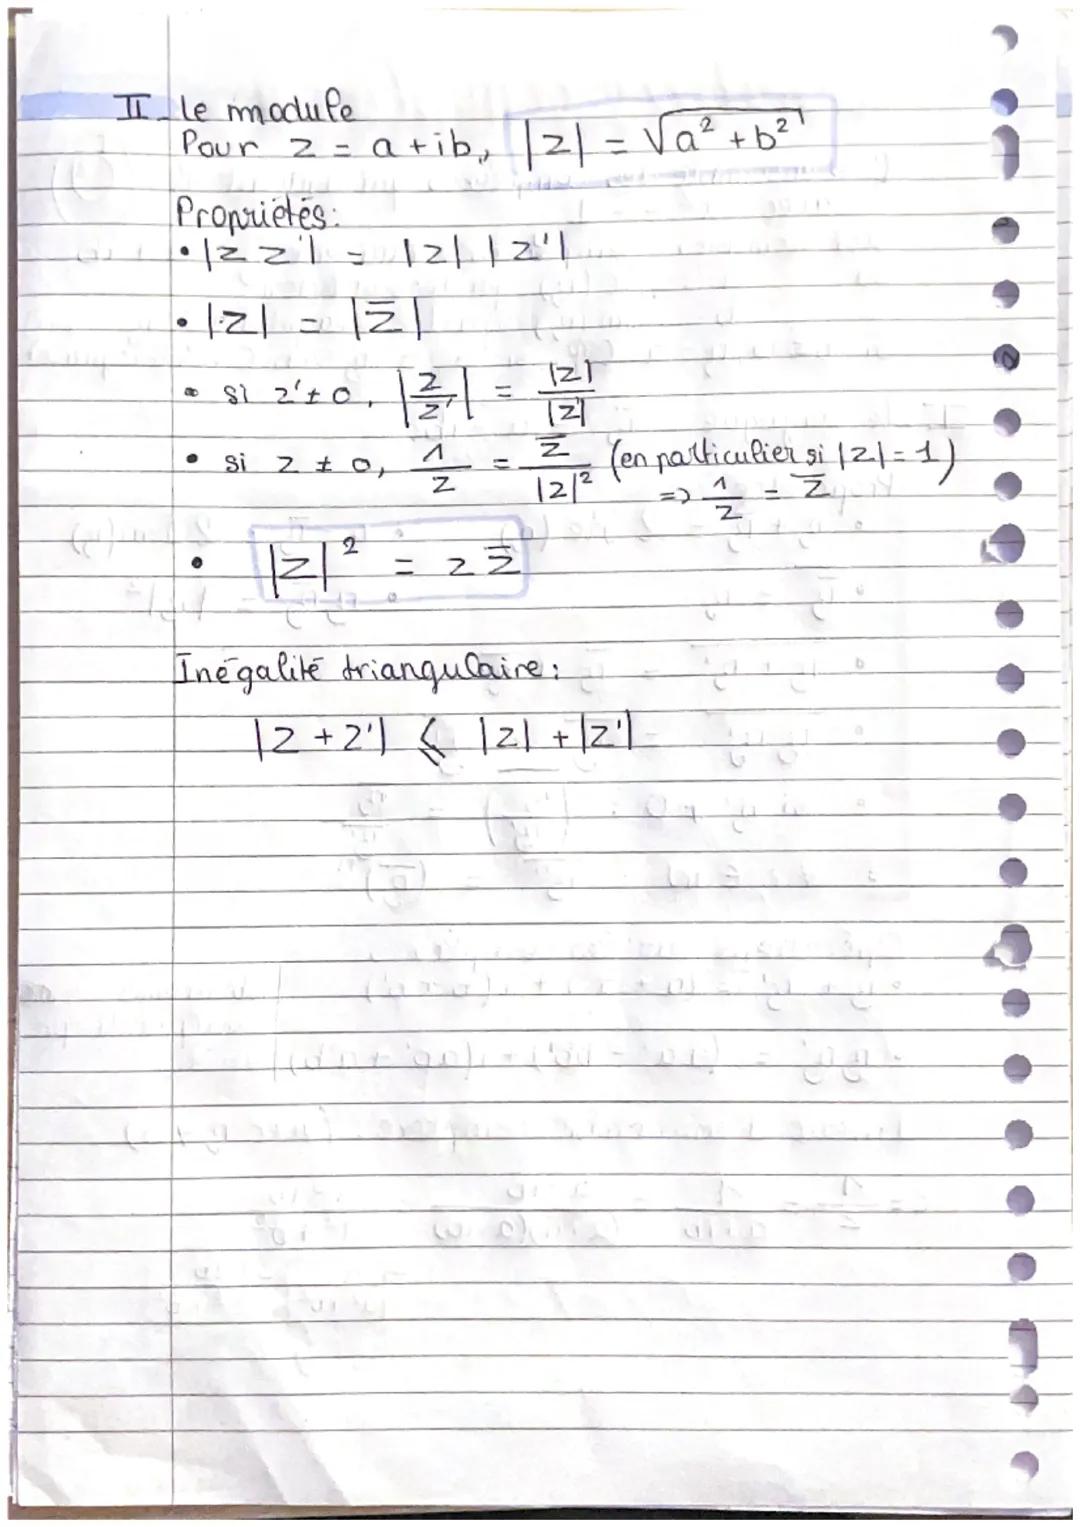 II le module
Pour z = a + ib, |z| = √a² + b²
Propriétés:
• |z z'| = |z| |z'|
• |z| = |z̅|
• si z' ≠ 0, |z/z'| = |z|/|z'|
• si z ≠ 0, 1/z = z̅/|z|² (en particulier si |z| = 1)
=> 1/z = z̅
• |z|² = z z̅
Inégalité triangulaire :
|z + z'| ⩽ |z| + |z'|